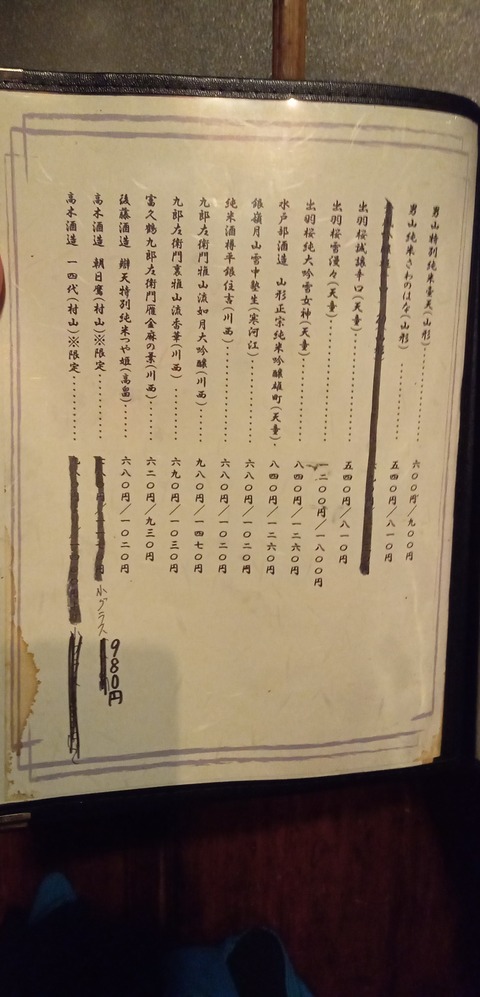 男山特別純米壷天(山形)‥‥‥‥ 六〇〇円/九〇〇円
男山純米さわのはな(山形)‥‥‥‥ 五四〇円/八一〇円
出羽桜誠醸辛口(天童)‥‥‥‥ 五四〇円/八一〇円
出羽桜雪漫々(天童)‥‥‥‥ 二〇〇円/一八〇〇円
出羽桜純大吟雪女神(天童)‥‥‥‥ 八四〇円/一二六〇円
水戸部酒造 山形正宗純米吟醸雄町(天童)‥ 八四〇円/一二六〇円
銀嶺月山雪中塾生(寒河江)‥‥‥‥ 六八〇円/一〇二〇円
純米酒樽平銀住吉(川西)‥‥‥‥ 六八〇円/一〇二〇円
九郎左衛門雅山流如月大吟醸(川西)‥‥‥ 九八〇円/一四七〇円
九郎左衛門裏雅山流香華(川西)‥‥‥‥ 六九〇円/一〇三〇円
富久鶴九郎左衛門雁金麻の葉(川西)‥‥‥ 六二〇円/九三〇円
後藤酒造 辯天特別純米つや姫(高畠)‥‥‥ 六八〇円/一〇二〇円
高木酒造 朝日鷹(村山)※限定‥‥‥‥ 小グラス 980円
高木酒造 一四代(村山)※限定‥‥‥‥